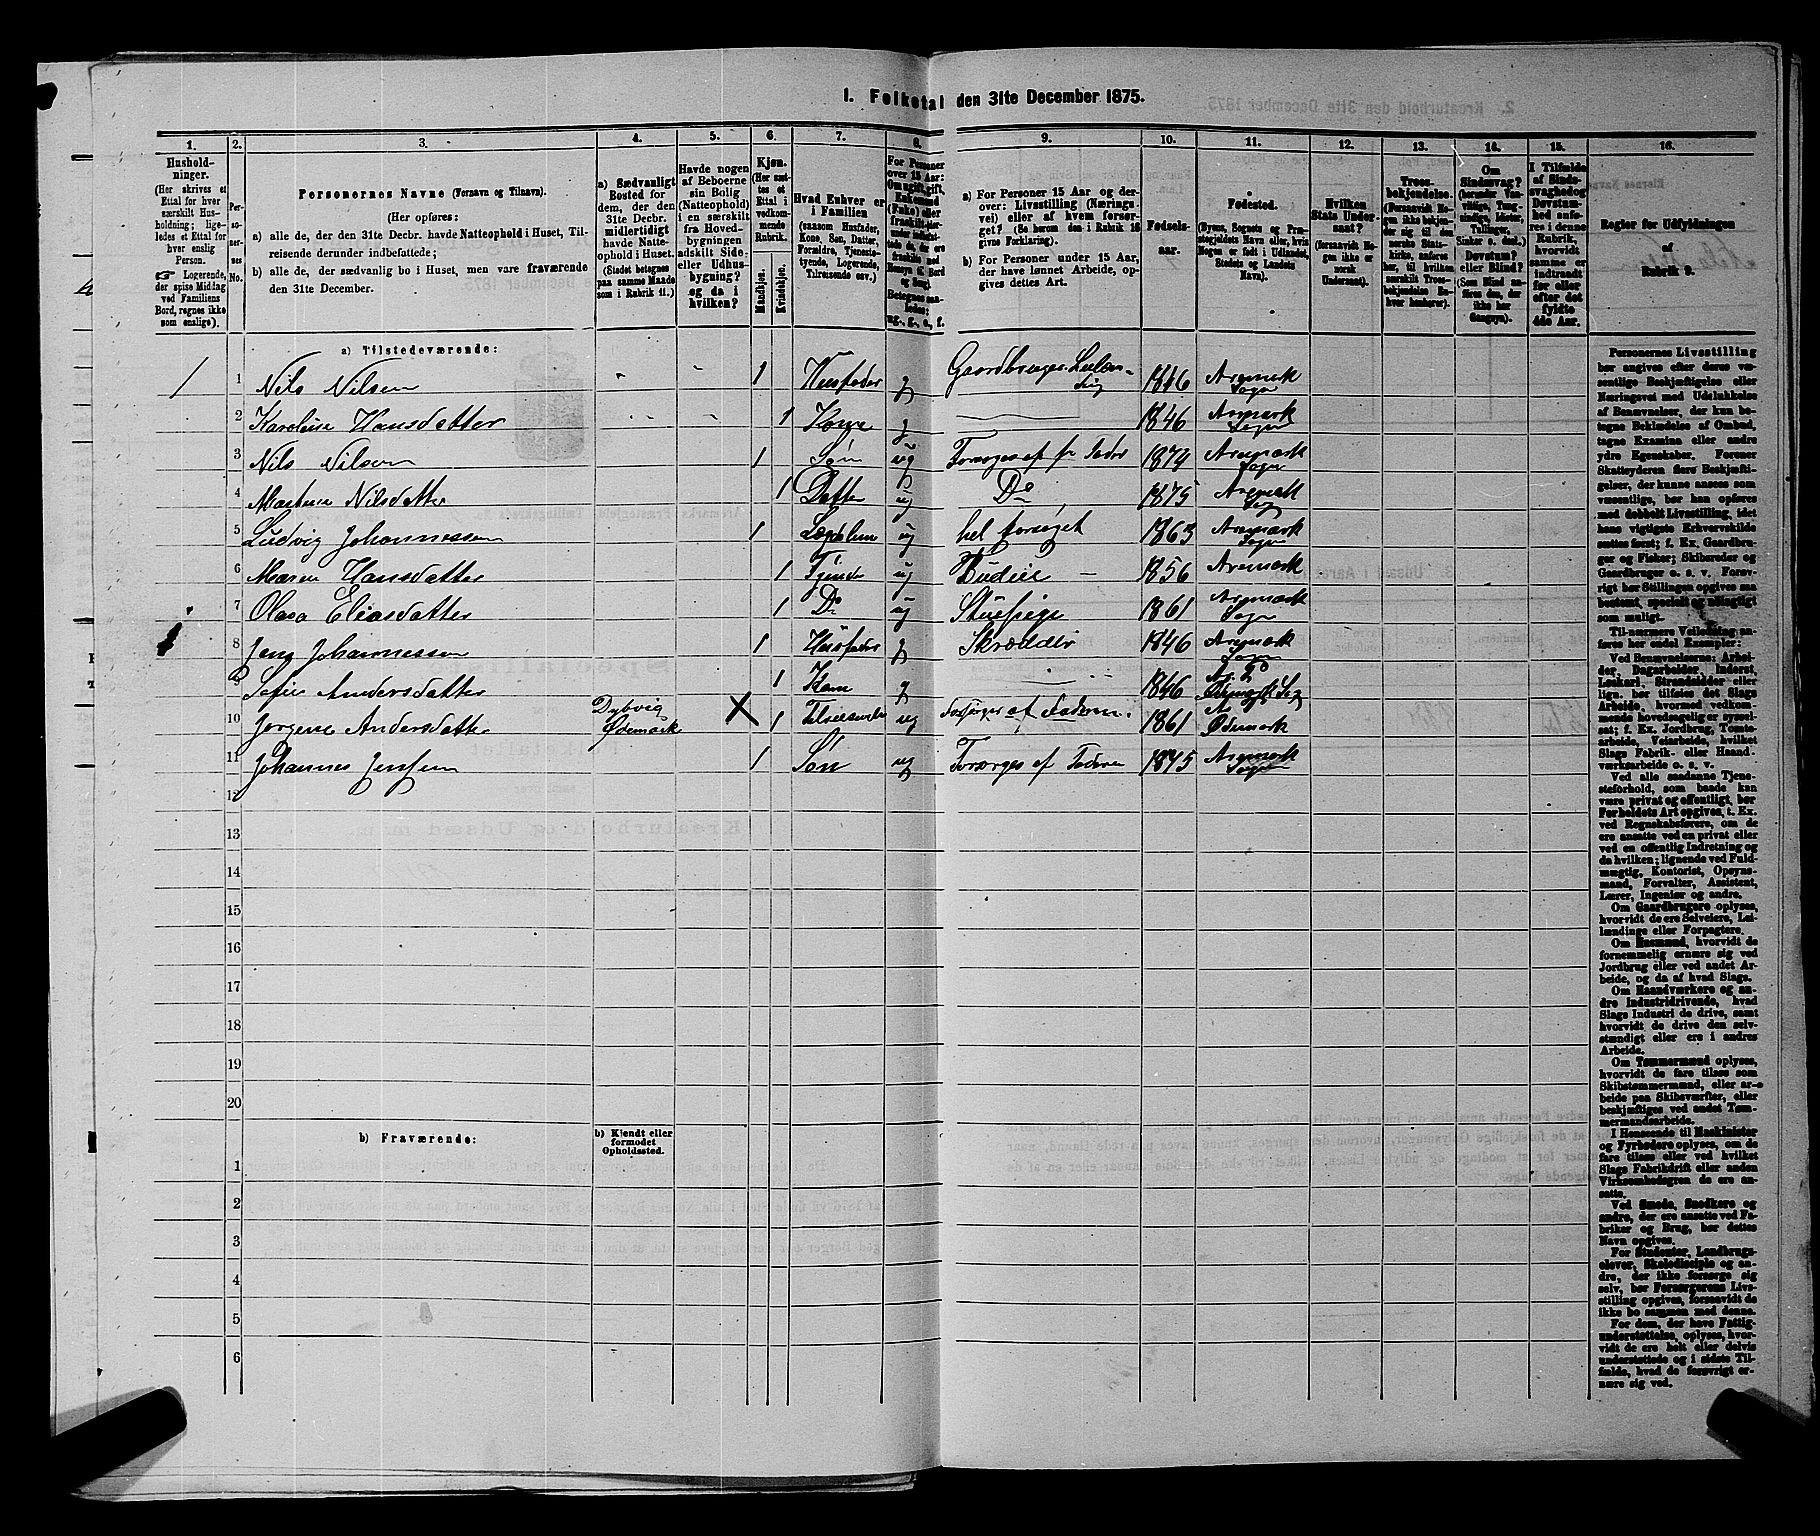 1. Folketal den 31te December 1875.
1. 2. 3. 4. 5. 6. 7. 8. 9. 10. 11. 12. 13. 14. 15. 16.
Hushold-
ninger.
(Her skrives et
Ettal for hver
særskilt Hus-
holdning; lige-
ledes et Ettal for
hver enslig
Person.
☞ Logerende,
der spise Middag
ved Familiens
Bord, regnes ikke
som enslige).
Per-
so-
ner-
nes
No.
Personernes Navne (Fornavn og Tilnavn).
(Her opføres:
a) alle de, der den 31te Decbr. havde Natteophold i Huset, Til-
reisende derunder indbefattede;
b) alle de, der sædvanlig bo i Huset, men vare fraværende
den 31te December.
a) Sædvanligt
Bosted for
dem, der den
31te Decbr.
midlertidigt
havde Natte-
ophold i Huset.
(Stedet betegnes
paa samme Maade
som i Rubrik 11.)
Havde nogen
af Beboerne
sin Bolig
(Natteophold)
i en særskilt
fra Hoved-
bygningen
adskilt Side-
eller Udhus-
bygning?
og da i
hvilken?
Kjøn.
(Her sæt-
tes et
Ettal i
vedkom-
mende
Rubrik.
Mandkjøn.
Kvindekjøn.
Hvad Enhver er
i Familien
(saasom Husfader,
Kone, Søn, Datter,
Forældre, Tjeneste-
tyende, Logerende,
Tilreisende osv.)
For Personer
over 15 Aar:
a) For Personer 15 Aar og der-
over: Livsstilling (Nærings-
vei) eller af hvem forsør-
get? (Se herom den i Rubrik 16
givne Forklaring).
b) For Personer under 15 Aar,
der have lønnet Arbeide, op-
gives dettes Art.
Fødsels-
aar.
Fødested.
(Byens, Sognets og Præ-
stegjeldets Navn eller, hvis
Nogen er født i Udlandet,
Stedets og Landets
Navn).
Hvilken
Stats Under-
saat?
(forsaavidt No-
gen ikke er
norsk
Undersaat).
Troes-
bekjendelse.
(Forsaavidt No-
gen ikke beken-
der sig til den
norske Stats-
kirke, anføres
her, til hvilken
særskilt Troes-
bekjendelse En-
hver henhører).
Om
Sindssvag?
Døvstum?
eller Blind?
(Som Blind an-
føres den, der
ikke har
Gangsyn).
I Tilfælde
af Sinds-
svaghed og
Døvstum-
hed anfø-
res i denne
Rubrik,
hvorvidt
samme er
indtraadt
før eller
efter det
fyldte
4de Aar.
Regler for Udfyldningen
af
Rubrik 9.
a) Tilstedeværende:
1 1 Nils Nilsen 1 Husfader g Gaordbruger 1846 Aremark Sogn
2 Karoline Hansdatter 1 Kone g 1846 Aremark Sogn
3 Nils Nilsen 1 Søn ug Forsørges af fader 1874 Aremark Sogn
4 Martine Nilsdatter 1 Datter ug Do 1875 Aremark Sogn
5 Ludvig Johannessen 1 Lægdslem ug hel forsørget 1863 Aremark Sogn
6 Maren Hansdatter 1 Tjende ug Budeie 1856 Aremark
7 Olava Eliasdatter 1 Do ug Stuepige 1861 Aremark Sogn
1 8 Jens Johannessen 1 Husfader g Skrædder 1846 Aremark Sogn
9 Sofie Andersdatter 1 Kone g 1846 Ødemark Sog
10 Jørgine Andersdatter Dybvig Ødemark X 1 Tilreisende ug Forsørges af Faderen. 1861 Ødemark
11 Johannes Jensen 1 Søn ug Forsørges af Faderen 1845 Aremark Sogn
12
13
14
15
16
17
18
19
20
b) Fraværende:
b) Kjendt eller
formodet
Opholdssted.
1
2
3
4
5
6
Personernes Livsstilling
bør angives efter deres væ-
sentlige Beskjæftigelse eller
Næringsvei med Udelukkelse
af Benævnelser, der kun be-
tegne Bekledelse af Ombud,
tagne Examina eller andre
ydre Egenskaber. Forener
Skatteyderen flere Beskjæfti-
gelser, der kunne ansees som
væsentlige, bør han opføres
med dobbelt Livsstilling, idet
hans vigtigste Erhvervskilde
sættes først; f. Ex. Gaardbru-
ger og Fisker; Skibsreder og
Gaardbruger o. s. v. Forøv-
rigt bør Stillingen opgives saa
bestemt, specielt og nøiagtigt
som muligt.
Til nærmere Veiledning an-
føres her endel Exempler:
Ved Benævnelserne: Arbei-
der, Dagarbeider, Inderst,
Løskarl, Strandsidder eller
lign. bør tilføies det Slags
Arbeide, hvormed vedkom-
mende hovedsagelig er syssel-
sat; f. Ex. Jordbrug, Tomte-
arbeide, Veiarbeide, hvilket
Slags Fabrik- eller Haand-
værksarbeide o. s. v.
Ved alle saadanne Tjene-
steforhold, som baade kan
være privat og offentligt, bør
Forholdets Art opgives, t. Ex.
ved Regnskabsførere, om de
ere ansatte ved en privat eller
ved en offentlig Indretning og
da hvilken; lignende ved Fuld-
mægtig, Kontorist, Opsyns-
mand, Forvalter, Assistent,
Lærer, Ingeniør og andre.
Om Gaardbrugere oplyses,
hvorvidt de ere Selveiere, Lei-
lændinge eller Forpagtere.
Om Husmænd, hvorvidt de
fornemmelig ernære sig ved
Jordbrug eller ved andet Ar-
beide, og da af hvad Slags.
Om Haandværkere og an-
dre Industridrivende, hvad
Slags Industri de drive, samt
hvorvidt de drive den selv-
stændigt eller ere i andres
Arbeide.
Om Tømmermænd oplyses,
hvorvidt de fare tilsøs som
Skibstømmermænd, eller ar-
beide paa Skibsværfter, eller
beskjæftiges ved andet Tøm-
mermandsarbeide.
I Henseende til Maskinister
og Fyrbødere oplyses, om de
fare tilsøs eller ved hvilket
Slags Fabrikdrift eller anden
Virksomhedsgren de ere an-
satte.
Ved Smede, Snedkere og
andre, der ere ansatte ved Fa-
briker og Brug, bør dettes
Navn opgives.
For Studenter, Landbrugs-
elever, Skoledisciple og an-
dre, der ikke forsørge sig
selv, bør Forsørgerens Livs-
stilling opgives, forsaavidt de
ikke bo sammen med denne.
For dem, der have Fattig-
understøttelse, oplyses, hvor-
vidt de ere helt eller delvis
understøttede og i sidste Til-
fælde, hvad de forøvrigt er-
nære sig ved.